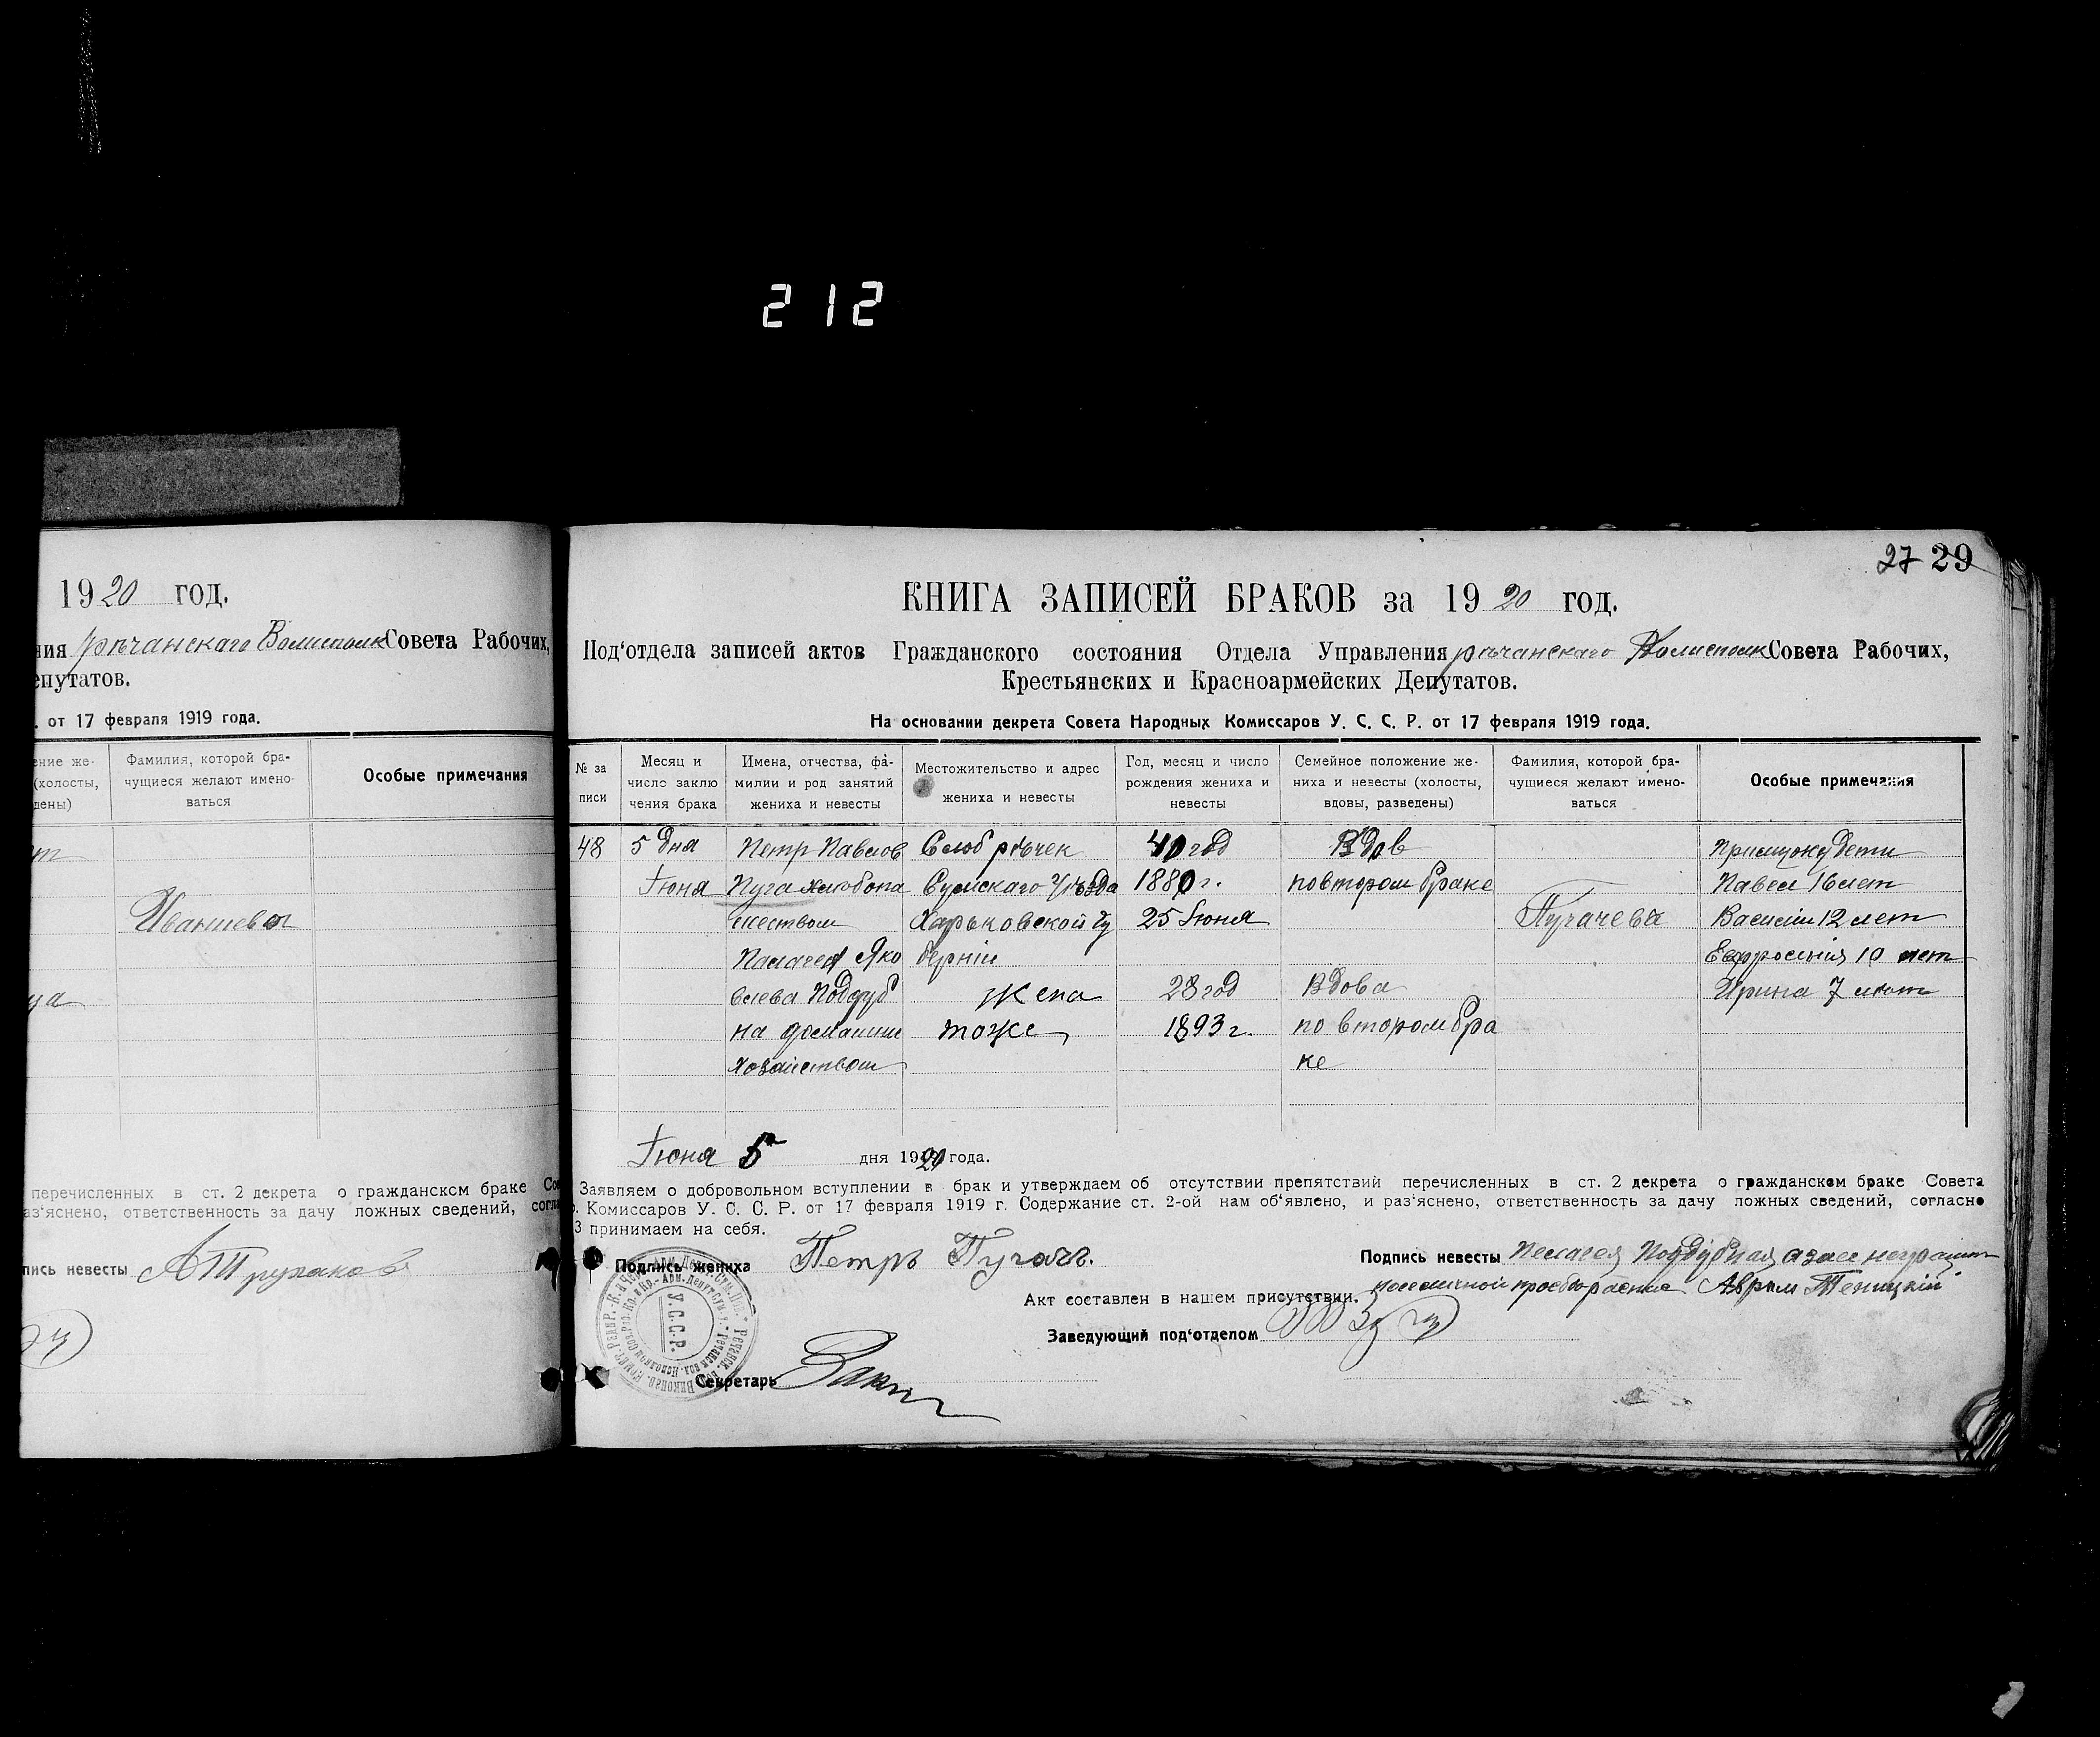 212
1920 год.
ния рѣчанскаго Волисполк Совета Рабочих,
епутатов.
. от 17 февраля 1919 года.
ение же-
(холосты,
дены)
Фамилия, которой бра-
чущиеся желают имено-
ваться
Особые примечания
перечисленных в ст. 2 декрета о гражданском браке Сов
аз‘яснено, ответственность за дачу ложных сведений, согла
пись невесты
27 29
КНИГА ЗАПИСЕЙ БРАКОВ за 1920 год.
Под‘отдела записей актов Гражданского состояния Отдела Управления рѣчанскаго Волисполк Совета Рабочих,
Крестьянских и Красноармейских Депутатов.
На основании декрета Совета Народных Комиссаров У. С. С. Р. от 17 февраля 1919 года.
№ за
писи
Месяц и
число заклю
чения брака
Имена, отчества, фа-
милии и род занятий
жениха и невесты
Местожительство и адрес
жениха и невесты
Год, месяц и число
рождения жениха и
невесты
Семейное положение же-
ниха и невесты (холосты,
вдовы, разведены)
Фамилия, которой бра-
чущиеся желают имено-
ваться
Особые примечания
48
5 дня
Іюня
Петр Павлов
Пугач хлебопа
шеством
Пелагея Яко
влева Поддуб
на домашни
хозяйством
Слоб рѣчек
Сумскаго Уѣзда
Харьковской Гу
берніи
Жена
тоже
40 год
1880 г.
25 Іюня
28 год
1893 г.
Вдов
по втором браке
Вдова
по втором бра
ке
Пугачева
дети
Павел 16 лет
Василий 12 лет
Ефросинія 10 лет
Ирина 7 лет
Іюня 5 дня 1920 года.
Заявляем о добровольном вступлении в брак и утверждаем об отсутствии препятствий перечисленных в ст. 2 декрета о гражданском браке Совета
. Комиссаров У. С. С. Р. от 17 февраля 1919 г. Содержание ст. 2-ой нам об‘явлено, и раз‘яснено, ответственность за дачу ложных сведений, согласно
3 принимаем на себя.
Подпись жениха Петръ Пугачъ.
Подпись невесты Пелагея Поддубная а за ее неграмот
по личной просьбе
Акт составлен в нашем присутствии.
Заведующий под‘отделом
Секретарь
У.С.С.Р.